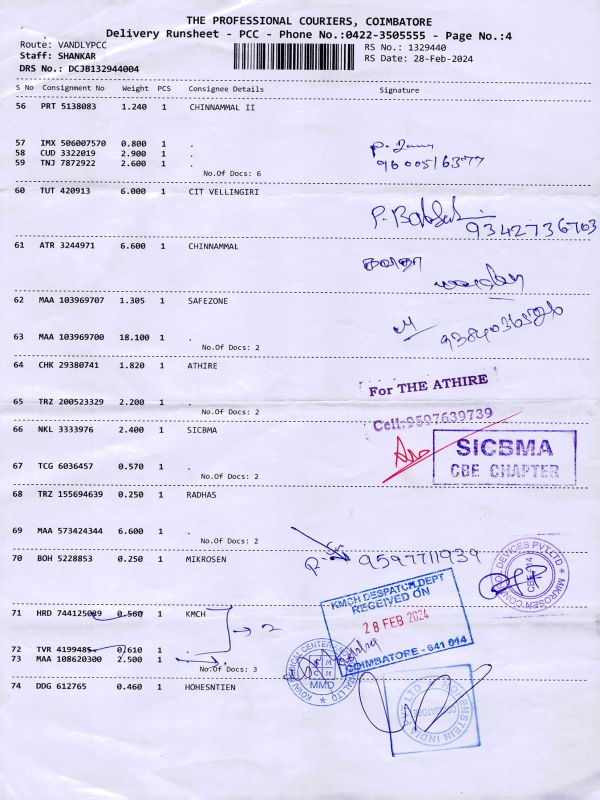 THE PROFESSIONAL COURIERS, COIMBATORE
Delivery Runsheet - PCC - Phone No.:0422-3505555 - Page No.:4
Route: VANDLYPCC
RS No.: 1329440
Staff: SHANKAR
RS Date: 28-Feb-2024
DRS No.: DCJB132944004
S No Consignment No Weight PCS Consignee Details Signature
56 PRT 5138083 1.240 1 CHINNAMMAL II
57 IMX 506007570 0.800 1 .
58 CUD 3322019 2.900 1 .
59 TNJ 7872922 2.600 1 .
No.Of Docs: 6
9600516377
60 TUT 420913 6.000 1 CIT VELLINGIRI
9342736703
61 ATR 3244971 6.600 1 CHINNAMMAL
62 MAA 103969707 1.305 1 SAFEZONE
63 MAA 103969700 18.100 1 .
No.Of Docs: 2
64 CHK 29380741 1.820 1 ATHIRE
For THE ATHIRE
65 TRZ 200523329 2.200 1 .
No.Of Docs: 2
Cell:9597639739
66 NKL 3333976 2.400 1 SICBMA
SICBMA
CBE CHAPTER
67 TCG 6036457 0.570 1 .
No.Of Docs: 2
68 TRZ 155694639 0.250 1 RADHAS
69 MAA 573424344 6.600 1 .
No.Of Docs: 2
70 BOH 5228853 0.250 1 MIKROSEN
9597711939
KMCH DESPATCH DEPT
RECEIVED ON
28 FEB 2024
COIMBATORE - 641 014
71 HRD 744125089 0.560 1 KMCH
2
72 TVR 4199485 0.610 1 .
73 MAA 108620300 2.500 1 .
No.Of Docs: 3
MMD
74 DDG 612765 0.460 1 HOHESNTIEN